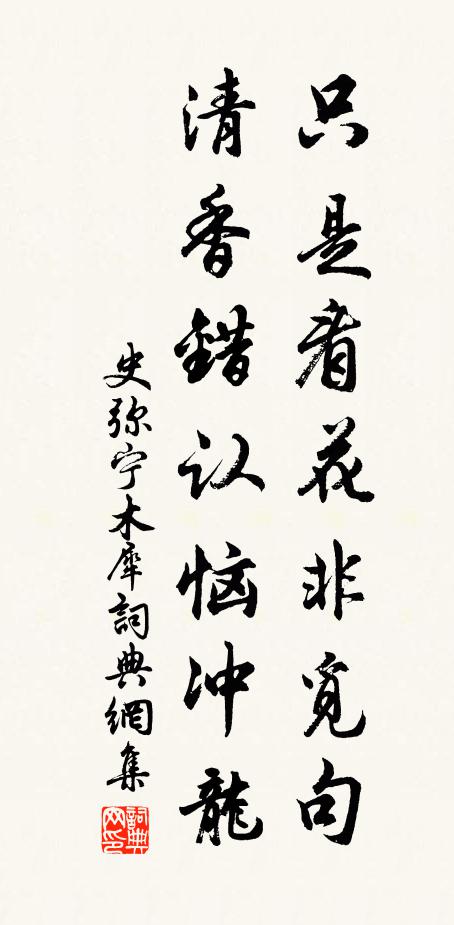 只是看花非觅句
清香错认恼冲龙
史弥宁木犀詞典網集
詞典网印